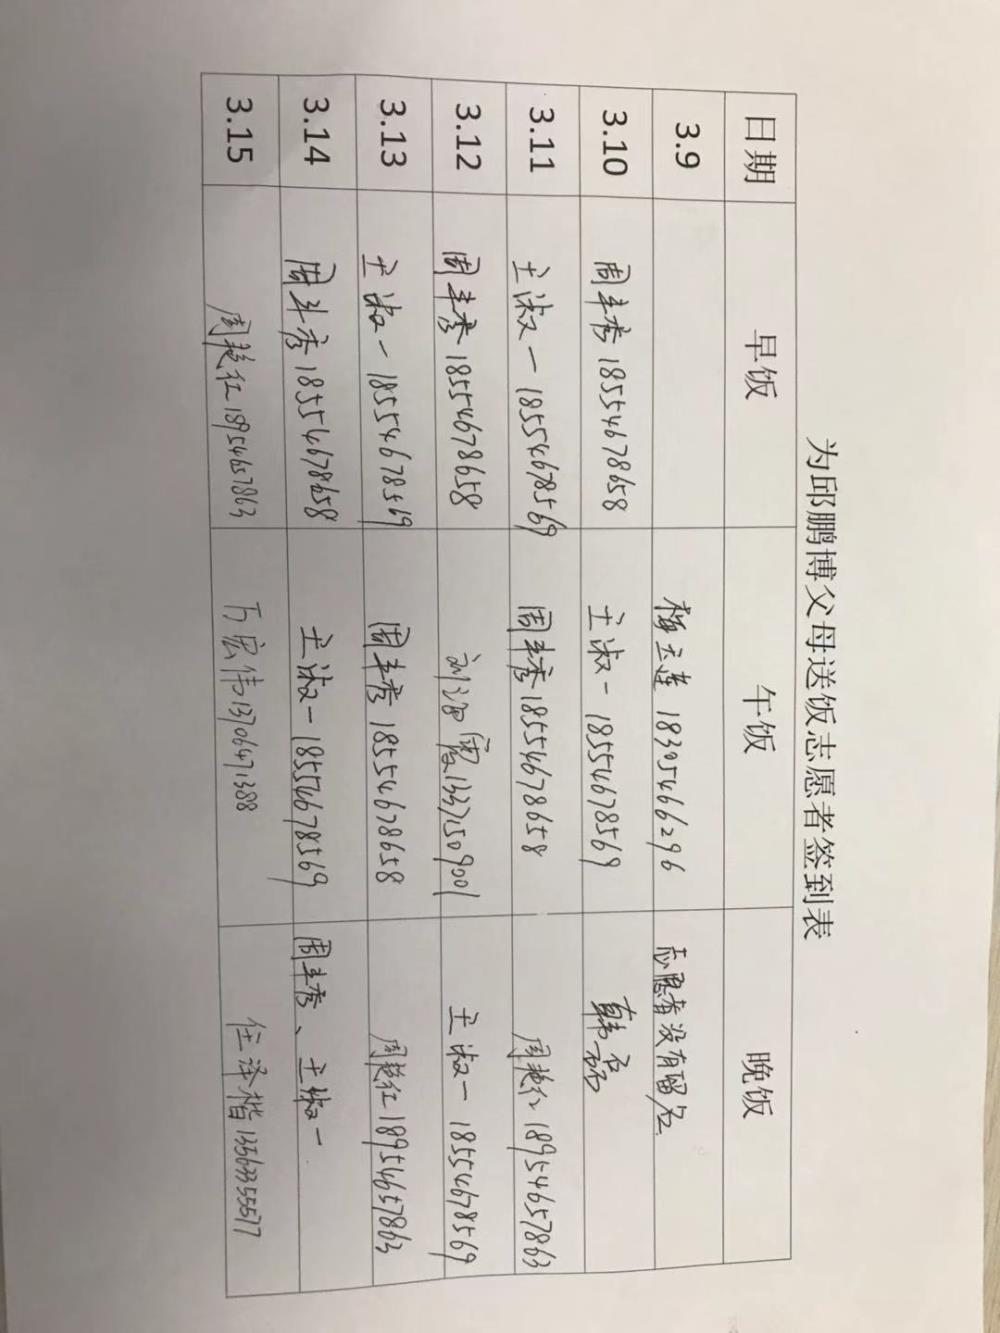 为邱鹏博父母送饭志愿者签到表
日期 早饭 午饭 晚饭
3.9 梅立莲 18305466296 志愿者没有留名
3.10 周丰秀 18554678658 王淑一 18554678569 韩磊
3.11 王淑一 18554678569 周丰秀 18554678658 周艳红 18954657863
3.12 周丰秀 18554678658 刘海霞 13371509001 王淑一 18554678569
3.13 王淑一 18554678569 周丰秀 18554678658 周艳红 18954657863
3.14 周丰秀 18554678658 王淑一 18554678569 周丰秀、王淑一
3.15 周艳红 18954657863 万宏伟 13706471388 任泽楷 13563355577